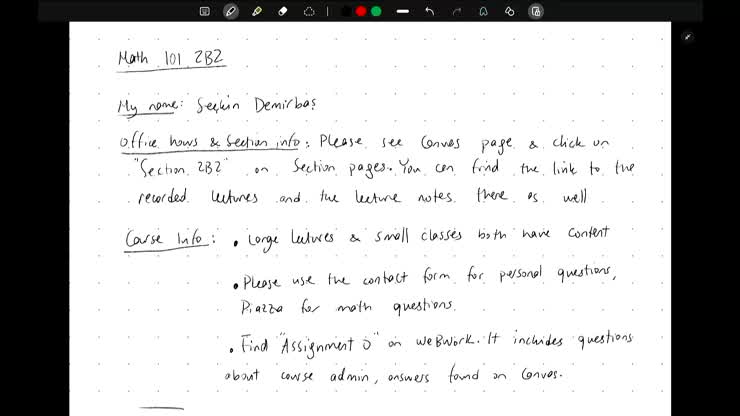 Math 101 2B2
My name: Seckin Demirbas
Office hours & Section info: Please see Canvas page & click on
"Section 2B2" on Section pages. You can find the link to the
recorded lectures and the lecture notes there as well
Course Info: • Large lectures & small classes both have content
• Please use the contact form for personal questions,
Piazza for math questions.
• Find "Assignment 0" on WeBWork. It includes questions
about course admin, answers found on Canvas.